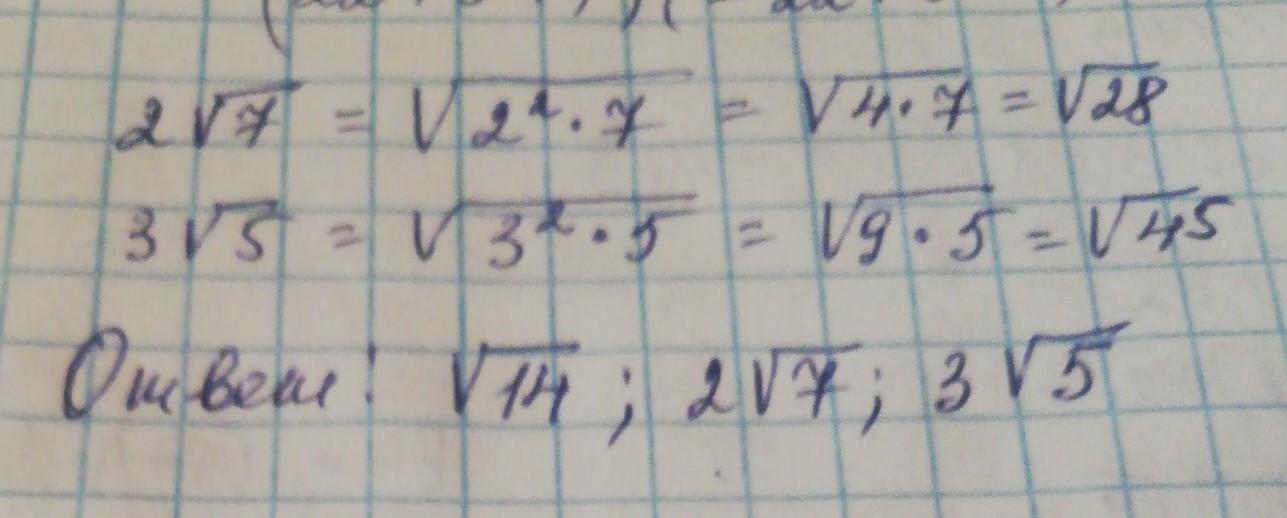 2√7 = √2²·7 = √4·7 = √28
3√5 = √3²·5 = √9·5 = √45
Ответ: √14; 2√7; 3√5